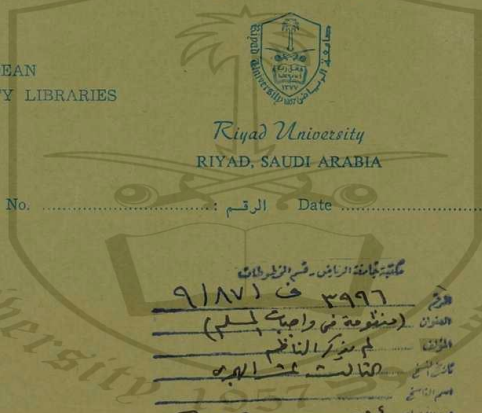 EAN
Y LIBRARIES
Riyad University
RIYAD, SAUDI ARABIA
No. ........................ : الرقم Date ........................
مكتبة جامعة الرياض - قسم المخطوطات
الرقم ٣٩٩٦ ف ٩/٨٧١
العنوان (منظومة في واجبات المسلم)
المؤلف لم يذكر الناظم
تاريخ النسخ الثالث عشر الهجري
اسم الناسخ
1957